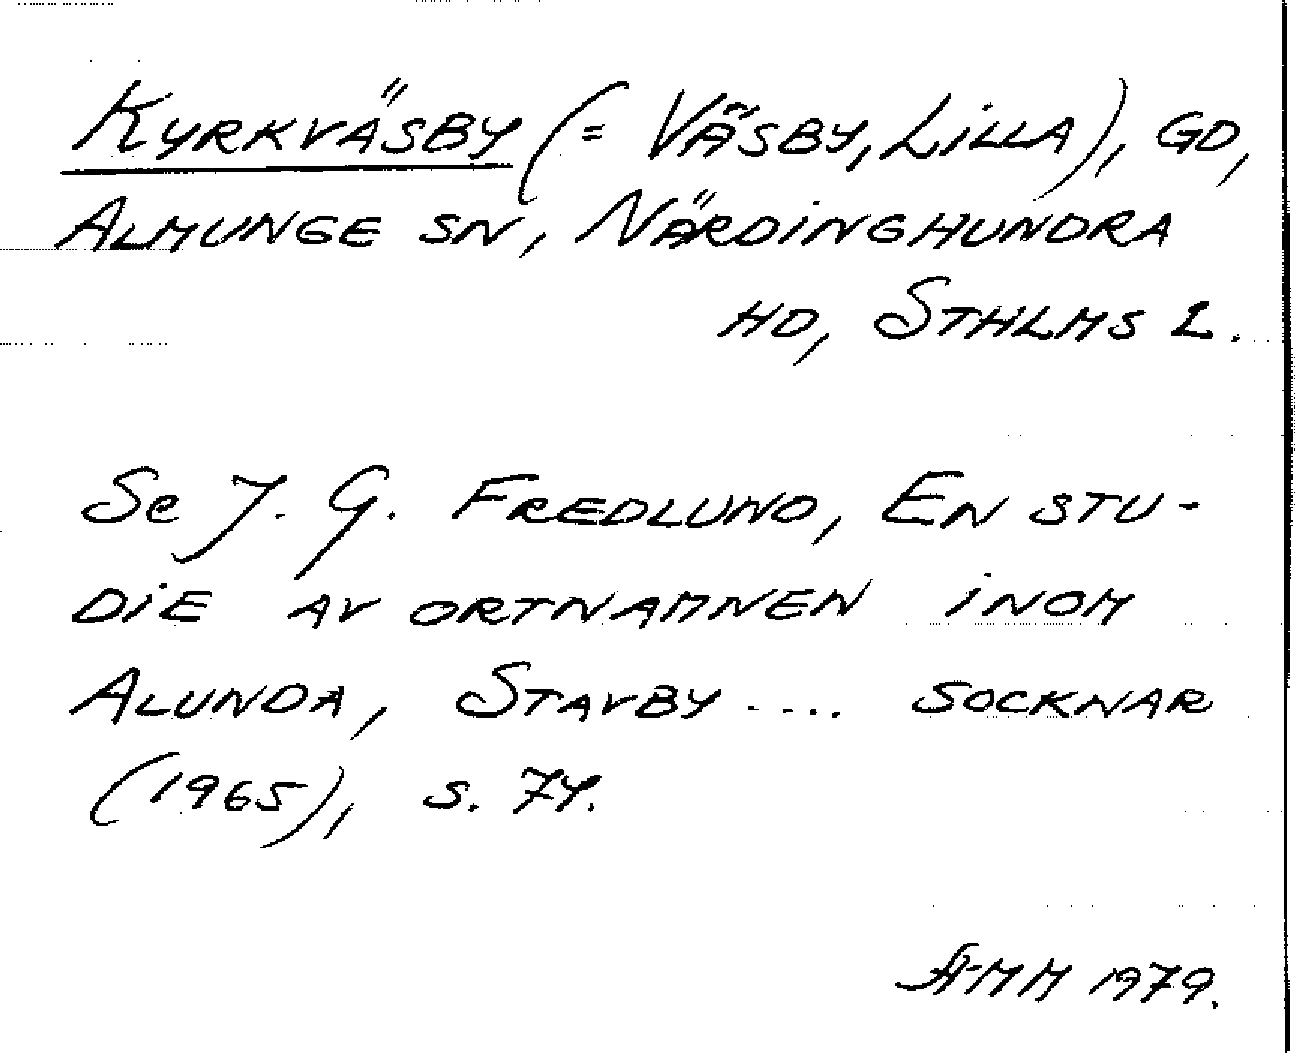 KYRKVÄSBY (= VÄSBY, LILLA), GD,
ALMUNGE SN, NÄRDINGHUNDRA
HD, STHLMS L.
Se J. G. FREDLUND, EN STU-
DIE AV ORTNAMNEN INOM
ALUNDA, STAVBY .... SOCKNAR
(1965), S. 74.
Å-MM 1979.